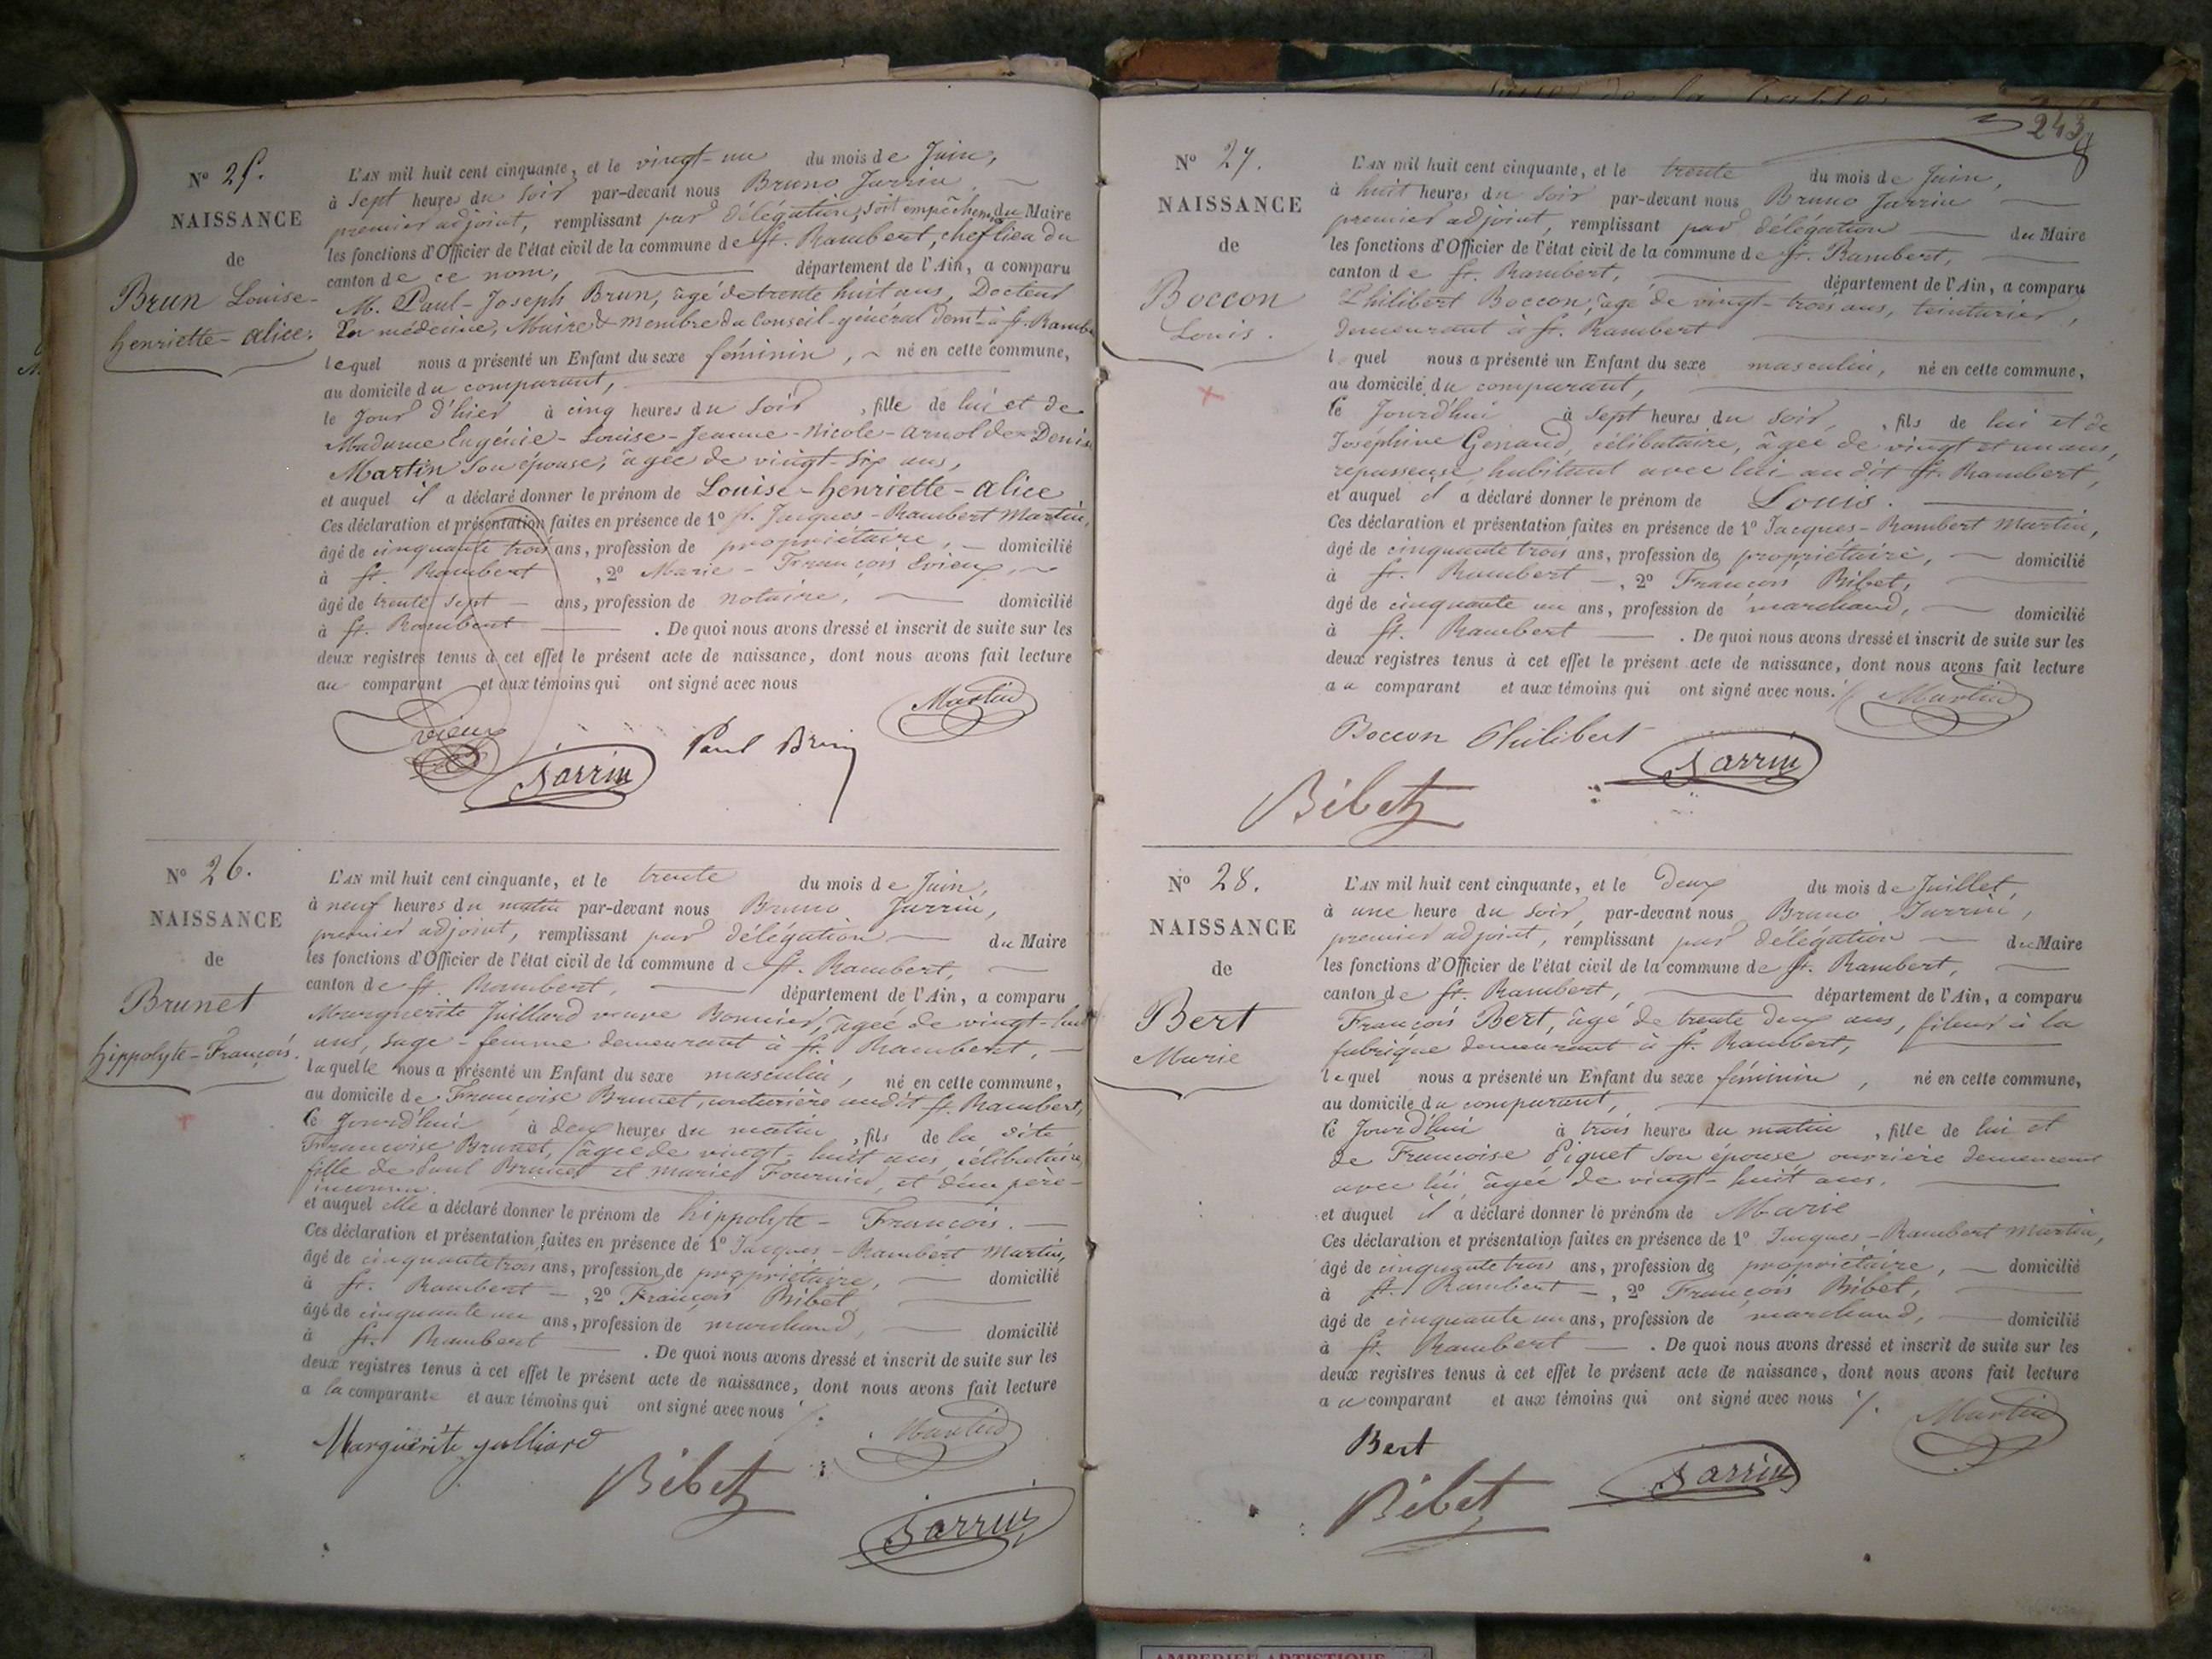 N° 25.
NAISSANCE
de
Brun Louise-
henriette-alice.
L'AN mil huit cent cinquante, et le vingt-un du mois de Juin,
à sept heures du soir par-devant nous Bruno Jarrin
premier adjoint, remplissant par délégation, soit empêchem. du Maire
les fonctions d'Officier de l'état civil de la commune de St. Rambert, cheflieu du
canton de ce nom, département de l'Ain, a comparu
M. Paul-Joseph Brun, âgé de trente huit ans, Docteur
En médecine, Maire & membre du Conseil-général demt. à St. Rambe
lequel nous a présenté un Enfant du sexe féminin, né en cette commune,
au domicile du comparant,
le jour d'hier à cinq heures du soir, fille de lui et de
Madame Eugénie-Louise-Jeanne-Nicole-Arnolde-Denise
Martin son épouse, âgée de vingt-six ans,
et auquel il a déclaré donner le prénom de Louise-henriette-alice
Ces déclaration et présentation faites en présence de 1° Jacques-Rambert Martin,
âgé de cinquante trois ans, profession de propriétaire, domicilié
à St. Rambert, 2° Marie-François Evieux,
âgé de trente sept ans, profession de notaire, domicilié
à St. Rambert. De quoi nous avons dressé et inscrit de suite sur les
deux registres tenus à cet effet le présent acte de naissance, dont nous avons fait lecture
au comparant et aux témoins qui ont signé avec nous
Martin
Evieux
Paul Brun
Jarrin
N° 26.
NAISSANCE
de
Brunet
hippolyte-François.
L'AN mil huit cent cinquante, et le trente du mois de Juin,
à neuf heures du matin par-devant nous Bruno Jarrin,
premier adjoint, remplissant par délégation du Maire
les fonctions d'Officier de l'état civil de la commune de St. Rambert,
canton de St. Rambert, département de l'Ain, a comparu
Marguerite Juillard veuve Bonnier, âgée de vingt-huit
ans, sage-femme demeurant à St. Rambert,
laquelle nous a présenté un Enfant du sexe masculin, né en cette commune,
au domicile de Françoise Brunet, couturière audit St. Rambert,
le jourd'hui à deux heures du matin, fils de la dite
Françoise Brunet, âgée de vingt-huit ans, célibataire,
fille de Paul Brunet et Marie Fournier, et d'un père-
inconnu.
et auquel elle a déclaré donner le prénom de hippolyte-François.
Ces déclaration et présentation faites en présence de 1° Jacques-Rambert Martin,
âgé de cinquante trois ans, profession de propriétaire, domicilié
à St. Rambert, 2° François Bibet,
âgé de cinquante un ans, profession de marchand, domicilié
à St. Rambert. De quoi nous avons dressé et inscrit de suite sur les
deux registres tenus à cet effet le présent acte de naissance, dont nous avons fait lecture
a la comparante et aux témoins qui ont signé avec nous
Marguerite julliard
Martin
Bibet
Jarrin
243
N° 27.
NAISSANCE
de
Boccon
Louis.
L'AN mil huit cent cinquante, et le trente du mois de Juin,
à huit heures du soir par-devant nous Bruno Jarrin
premier adjoint, remplissant par délégation du Maire
les fonctions d'Officier de l'état civil de la commune de St. Rambert,
canton de St. Rambert, département de l'Ain, a comparu
Philibert Boccon, âgé de vingt-trois ans, teinturier,
demeurant à St. Rambert
lequel nous a présenté un Enfant du sexe masculin, né en cette commune,
au domicile du comparant,
le jourd'hui à sept heures du soir, fils de lui et de
Joséphine Genaud, célibataire, âgée de vingt et un ans,
repasseuse, habitant avec lui audit St. Rambert,
et auquel il a déclaré donner le prénom de Louis.
Ces déclaration et présentation faites en présence de 1° Jacques-Rambert Martin,
âgé de cinquante trois ans, profession de propriétaire, domicilié
à St. Rambert, 2° François Bibet,
âgé de cinquante un ans, profession de marchand, domicilié
à St. Rambert. De quoi nous avons dressé et inscrit de suite sur les
deux registres tenus à cet effet le présent acte de naissance, dont nous avons fait lecture
au comparant et aux témoins qui ont signé avec nous.
Martin
Boccon Philibert
Jarrin
Bibet
N° 28.
NAISSANCE
de
Bert
Marie
L'AN mil huit cent cinquante, et le deux du mois de Juillet,
à une heure du soir, par-devant nous Bruno Jarrin,
premier adjoint, remplissant par délégation du Maire
les fonctions d'Officier de l'état civil de la commune de St. Rambert,
canton de St. Rambert, département de l'Ain, a comparu
François Bert, âgé de trente deux ans, fileur à la
fabrique demeurant à St. Rambert,
lequel nous a présenté un Enfant du sexe féminin, né en cette commune,
au domicile du comparant,
le jourd'hui à trois heures du matin, fille de lui et
de Françoise Piquet son épouse ouvrière demeurant
avec lui, âgée de vingt-huit ans.
et auquel il a déclaré donner le prénom de Marie
Ces déclaration et présentation faites en présence de 1° Jacques-Rambert Martin,
âgé de cinquante trois ans, profession de propriétaire, domicilié
à St. Rambert, 2° François Bibet,
âgé de cinquante un ans, profession de marchand, domicilié
à St. Rambert. De quoi nous avons dressé et inscrit de suite sur les
deux registres tenus à cet effet le présent acte de naissance, dont nous avons fait lecture
au comparant et aux témoins qui ont signé avec nous
Martin
Bert
Jarrin
Bibet